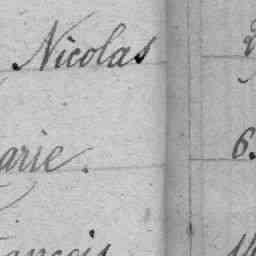 Nicolas
arie. 6.
ançois